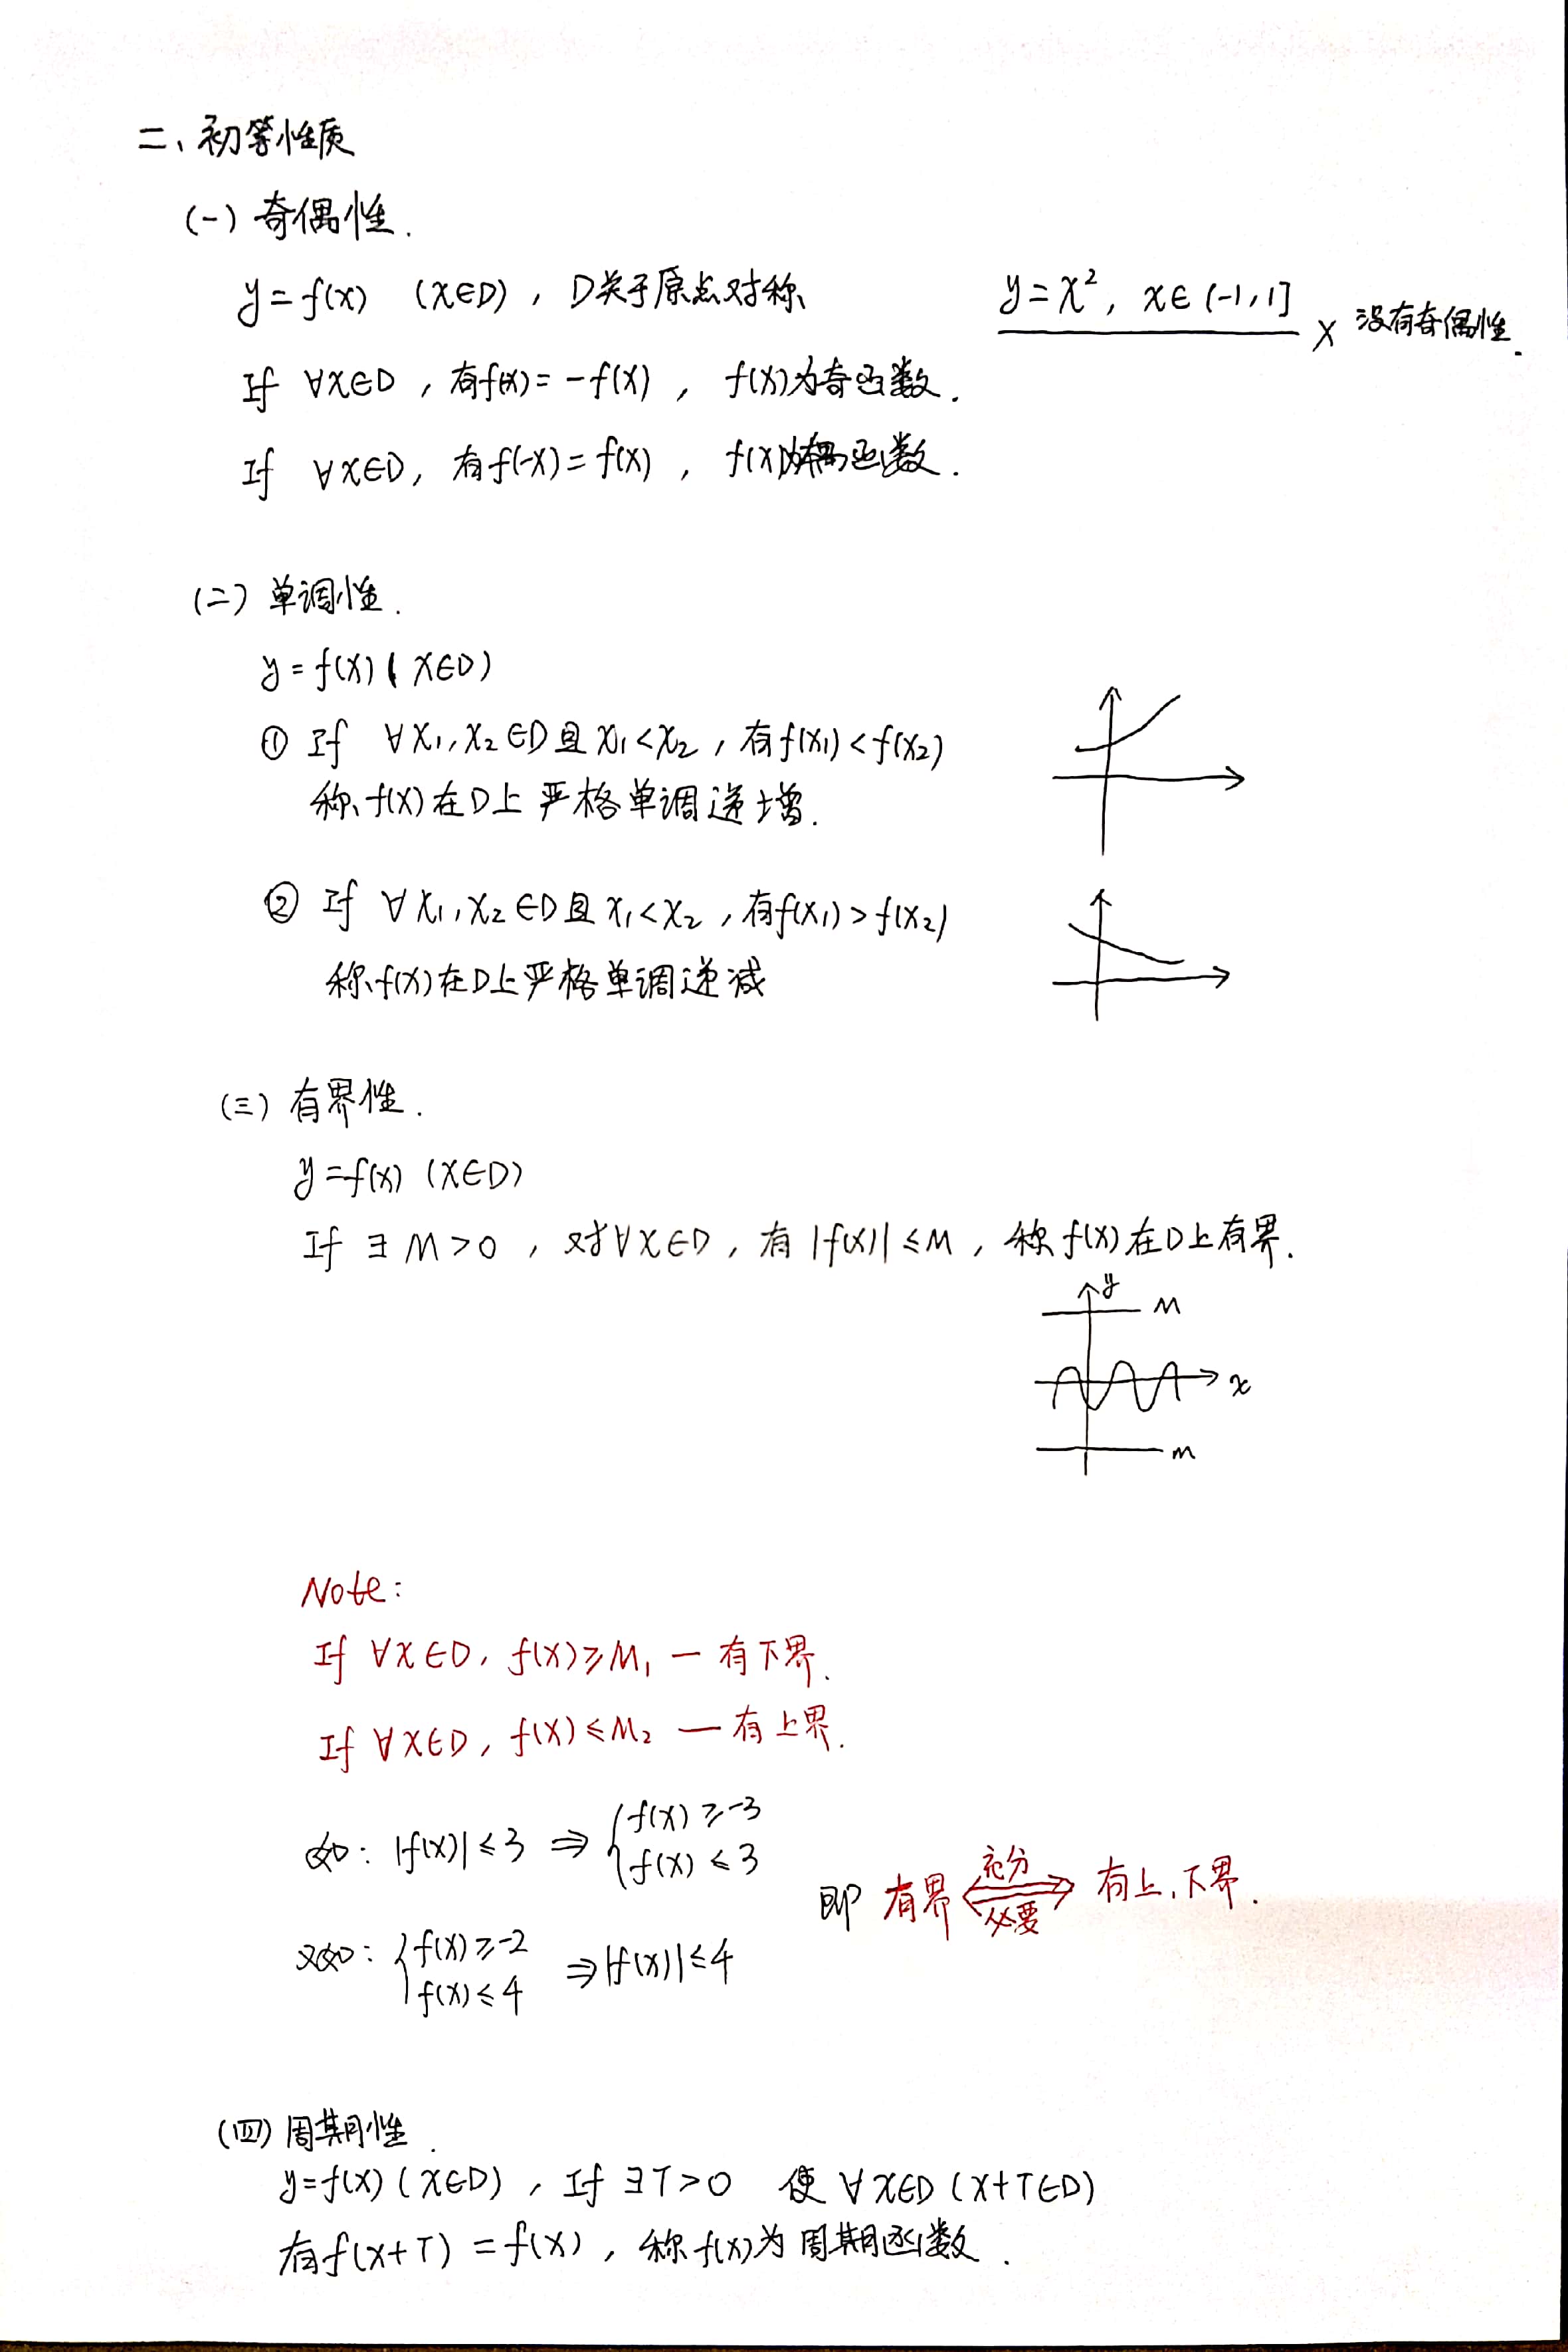 二、初等性质
(一) 奇偶性.
y=f(x) (x∈D), D关于原点对称
y=x², x∈(-1,1] × 没有奇偶性.
If ∀x∈D, 有f(x)=-f(x), f(x)为奇函数.
If ∀x∈D, 有f(-x)=f(x), f(x)为偶函数.
(二) 单调性.
y=f(x) (x∈D)
① If ∀x₁,x₂∈D且x₁<x₂, 有f(x₁)<f(x₂)
称f(x)在D上严格单调递增.
② If ∀x₁,x₂∈D且x₁<x₂, 有f(x₁)>f(x₂)
称f(x)在D上严格单调递减
(三) 有界性.
y=f(x) (x∈D)
If ∃M>0, 对∀x∈D, 有|f(x)|≤M, 称f(x)在D上有界.
y
M
x
m
Note:
If ∀x∈D, f(x)≥M₁ — 有下界.
If ∀x∈D, f(x)≤M₂ — 有上界.
如: |f(x)|≤3 ⇒ { f(x)≥-3
f(x)≤3
即 有界 充分 ⇔ 必要 有上、下界.
又如: { f(x)≥-2
f(x)≤4 ⇒|f(x)|≤4
(四) 周期性.
y=f(x) (x∈D), If ∃T>0 使 ∀x∈D (x+T∈D)
有f(x+T)=f(x), 称f(x)为周期函数.